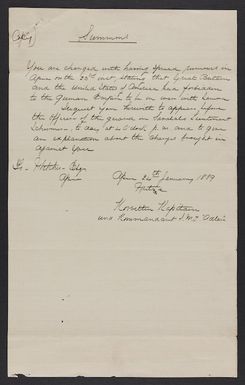 (Copy) Summons
You are charged with having spread rumours in
Apia on the 23rd inst, stating that Great Britain
and the United States of America had forbidden
to the German Empire to be on war with Samoa
I request you herewith to appear before
the Officer of the guard on
to day at o'clock p.m and to give
an explanation about the charges brought in
against you.
Esqr
Apia Apia 24th January 1889
Korvetten Kapitain
und Kommandant S.M.S "Adler"